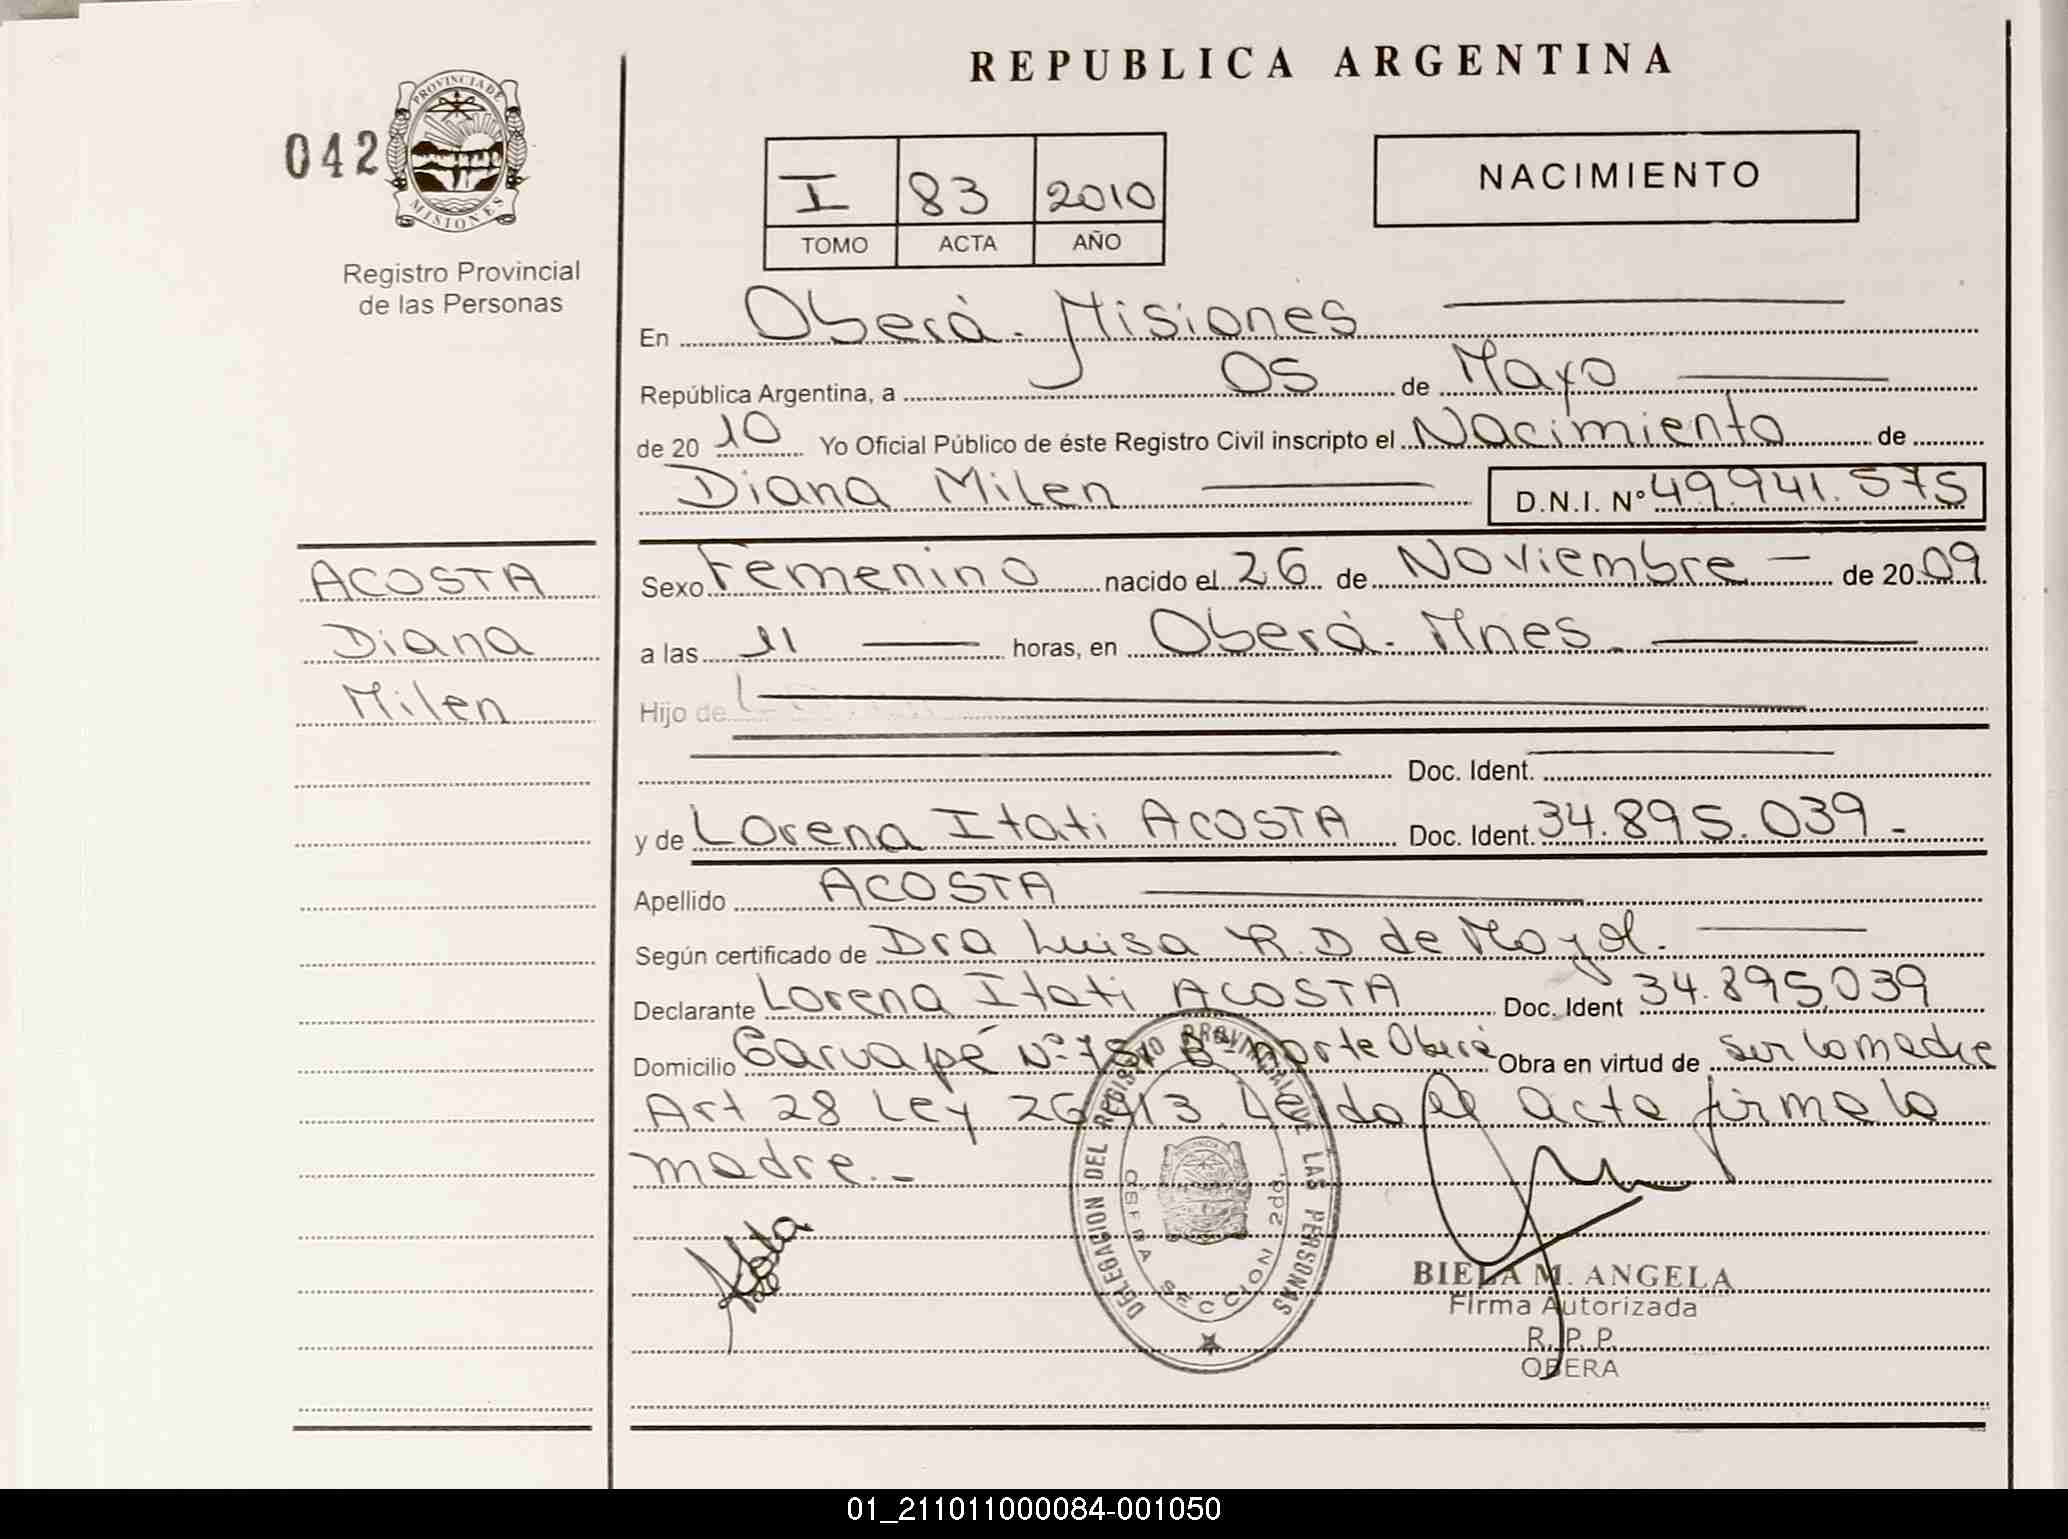 REPUBLICA ARGENTINA
042
PROVINCIA DE
MISIONES
Registro Provincial
de las Personas
I 83 2010
TOMO ACTA AÑO
NACIMIENTO
En Oberá - Misiones
República Argentina, a 05 de Mayo
de 20 10 Yo Oficial Público de éste Registro Civil inscripto el Nacimiento de
Diana Milen D.N.I. Nº 49.941.575
ACOSTA
Diana
Milen
Sexo Femenino nacido el 26 de Noviembre de 2009
a las 11 horas, en Oberá - Mnes.
Hijo de
Doc. Ident.
y de Lorena Itati ACOSTA Doc. Ident. 34.895.039.-
Apellido ACOSTA
Según certificado de Dra Luisa R.D de
Declarante Lorena Itati ACOSTA Doc. Ident 34.895.039
Domicilio Garuapé Nº norte Oberá Obra en virtud de ser la madre
Art 28 Ley 26413. Leida el acta firma la
madre.-
DELEGACION DEL REGISTRO PROVINCIAL DE LAS PERSONAS
SECCION 2da
BIELA M. ANGELA
Firma Autorizada
R. P. P.
OBERA
01_211011000084-001050